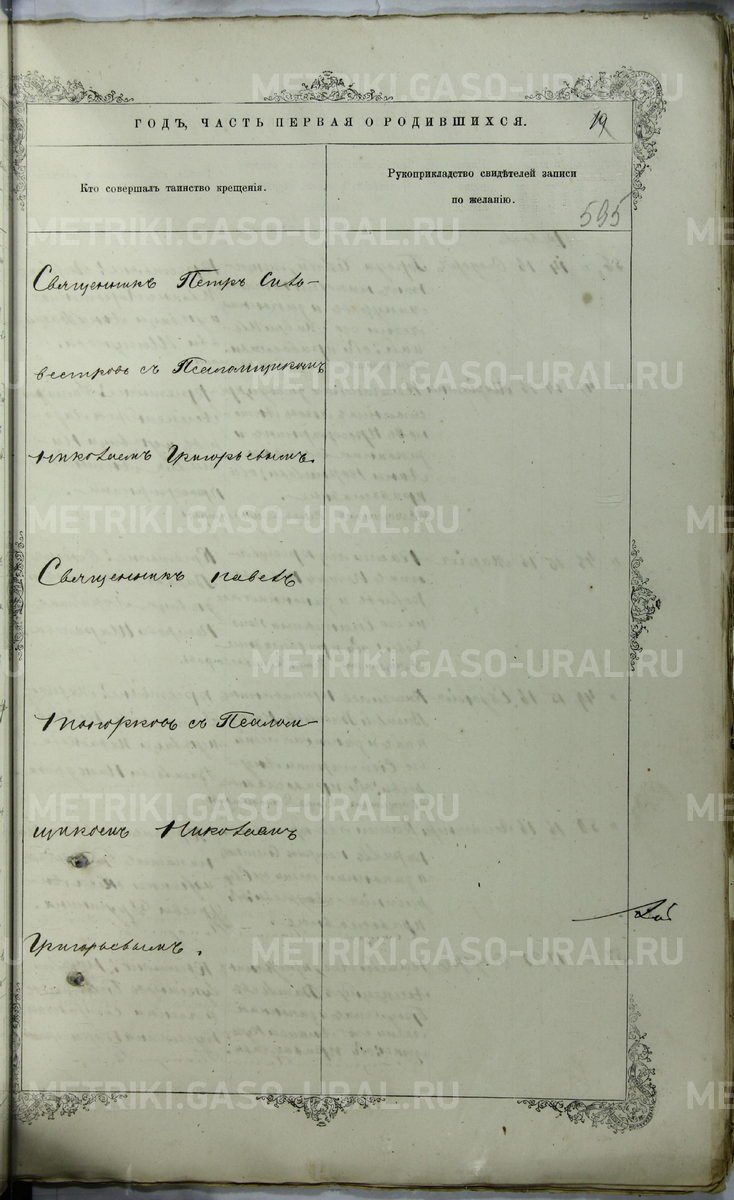 METRIKI.GASO-URAL.RU
ГОДЪ, ЧАСТЬ ПЕРВАЯ О РОДИВШИХСЯ.
19
Кто совершалъ таинство крещенія.
Рукоприкладство свидѣтелей записи
по желанію.
595
Священникъ Петръ Силь-
вестровъ съ Псаломщикомъ
Николаемъ Григорьевымъ.
Священникъ Павелъ
съ Псалом-
щикомъ Николаемъ
Григорьевымъ.